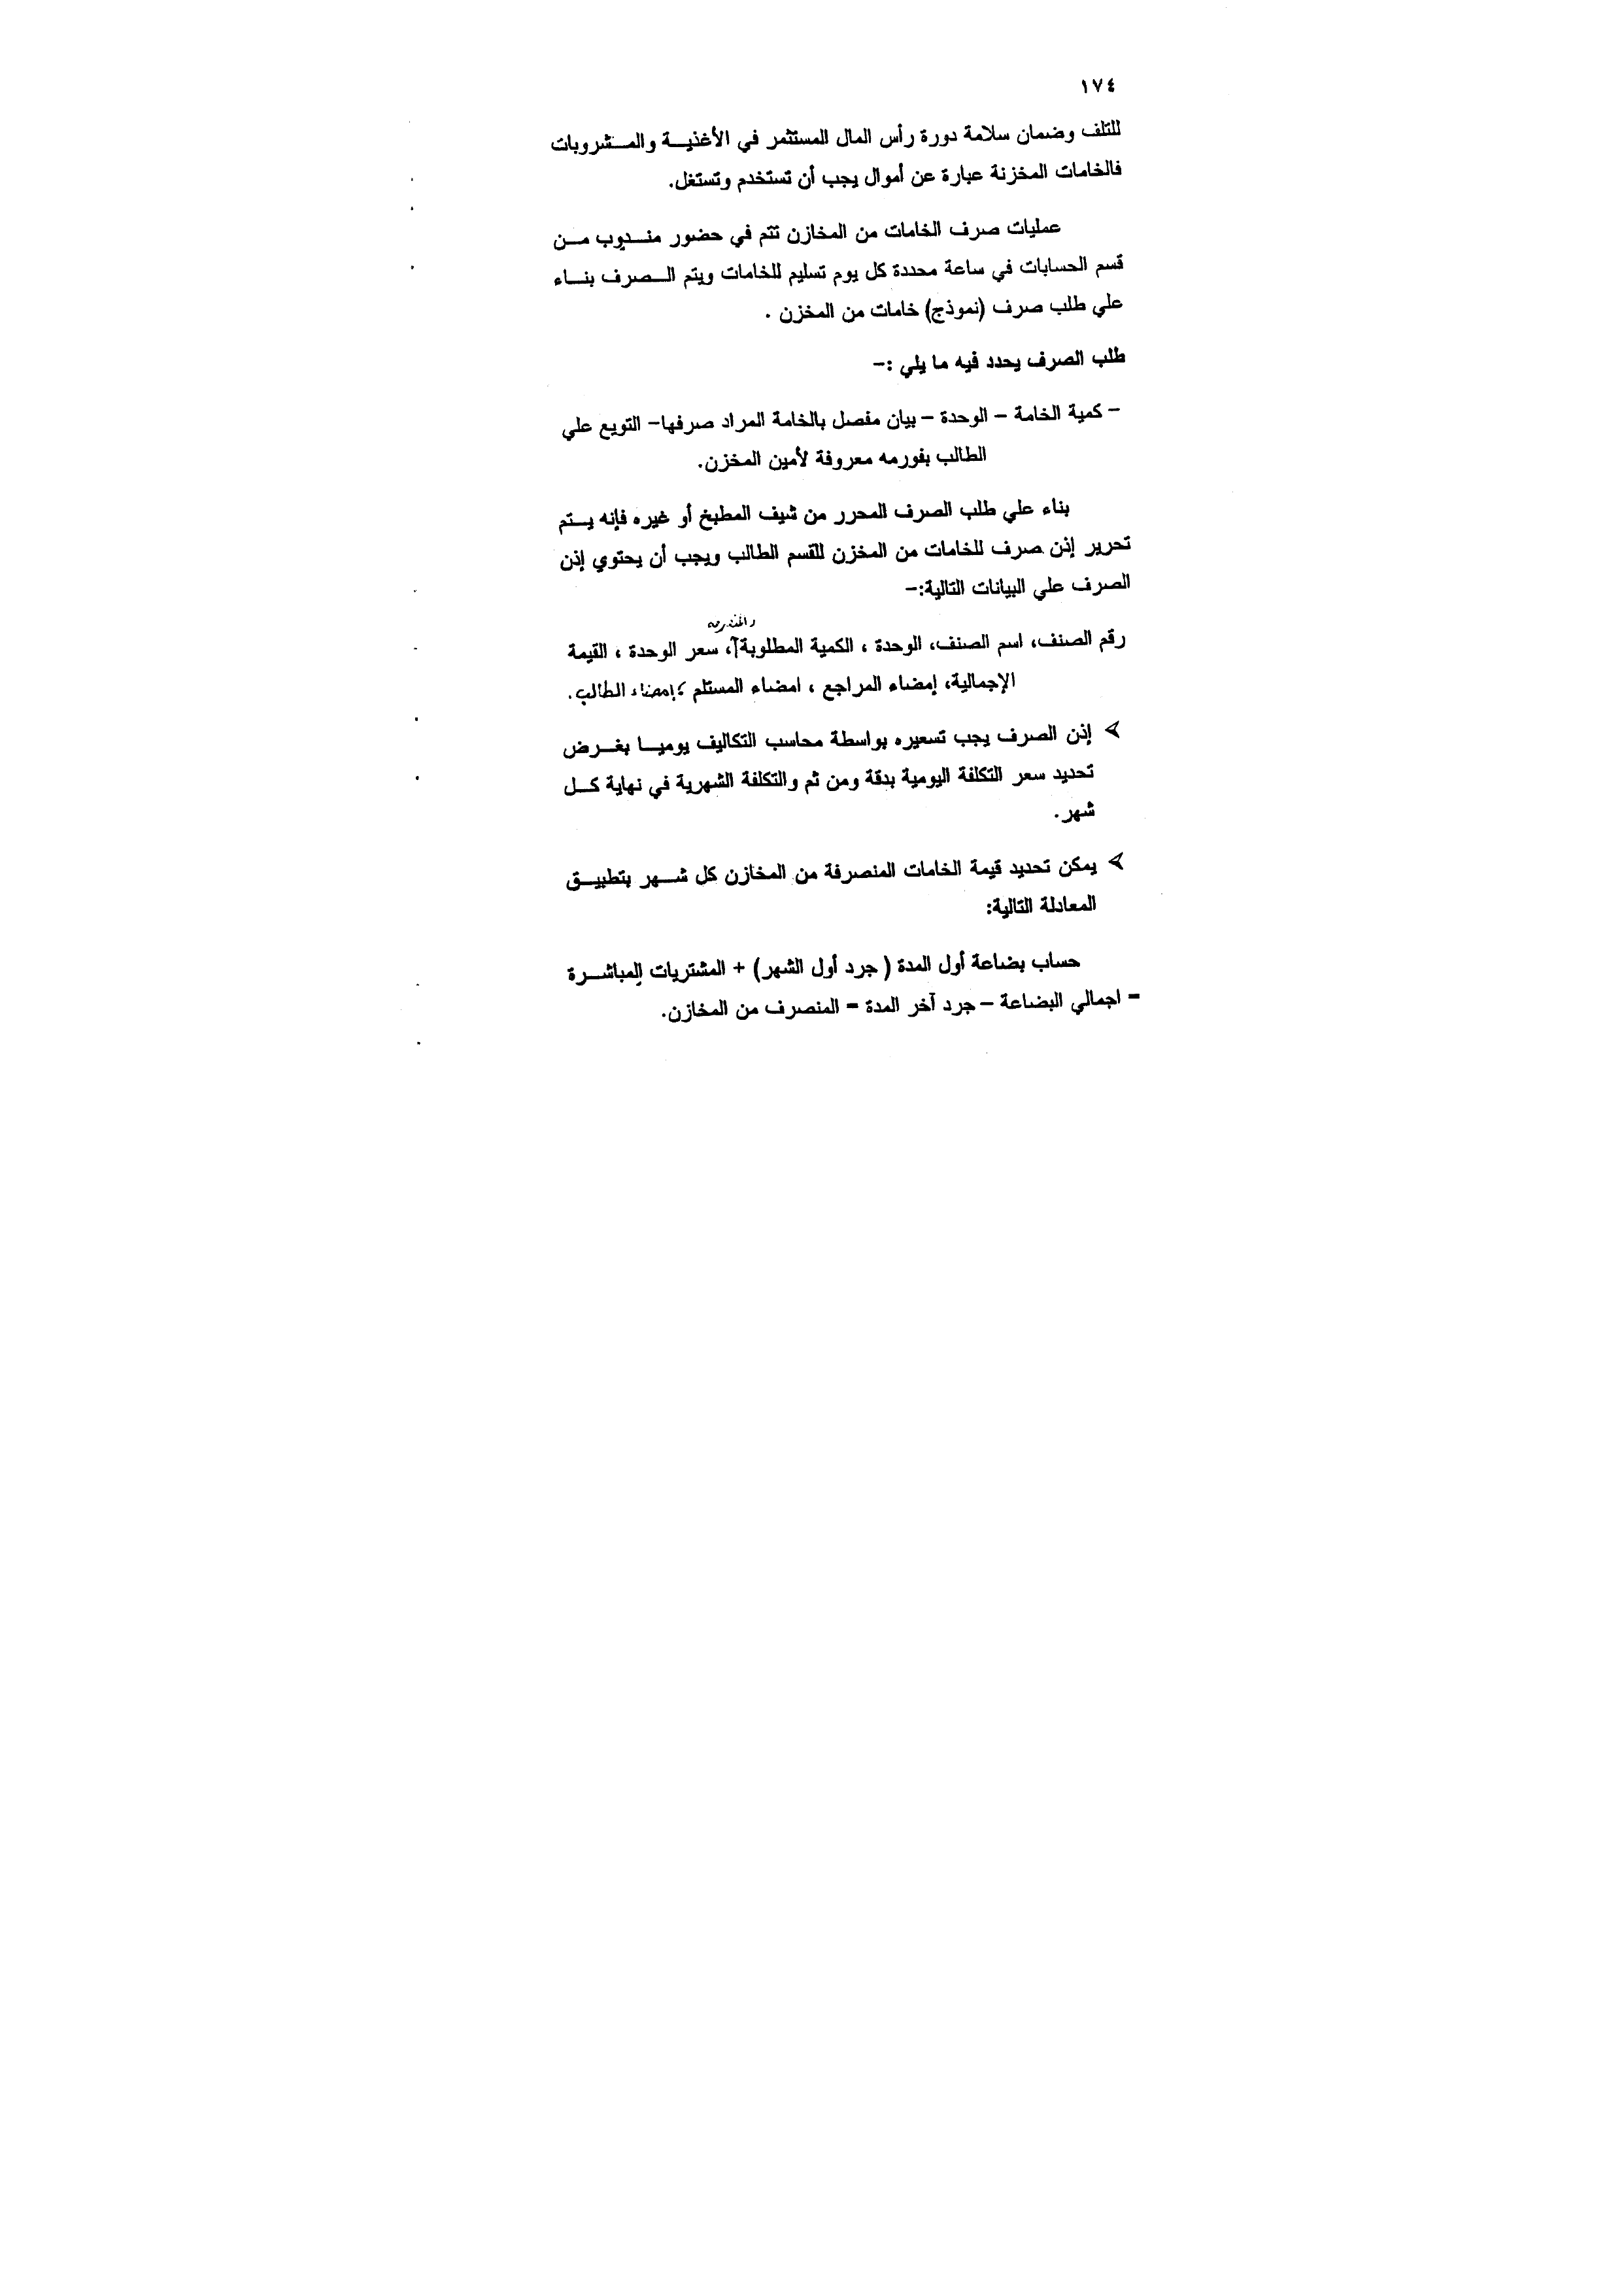 ١٧٤
للتلف وضمان سلامة دورة رأس المال المستثمر في الأغذية والمشروبات
فالخامات المخزنة عبارة عن أموال يجب أن تستخدم وتستغل.
عمليات صرف الخامات من المخازن تتم في حضور مندوب من
قسم الحسابات في ساعة محددة كل يوم تسليم للخامات ويتم الصرف بناء
علي طلب صرف (نموذج) خامات من المخزن .
طلب الصرف يحدد فيه ما يلي :-
- كمية الخامة - الوحدة - بيان مفصل بالخامة المراد صرفها- التويع علي
الطالب بفورمه معروفة لأمين المخزن.
بناء علي طلب الصرف المحرر من شيف المطبخ أو غيره فإنه يتم
تحرير إذن صرف للخامات من المخزن للقسم الطالب ويجب أن يحتوي إذن
الصرف علي البيانات التالية:-
رقم الصنف، اسم الصنف، الوحدة ، الكمية المطلوبة، سعر الوحدة ، القيمة
الإجمالية، إمضاء المراجع ، امضاء المستلم ؛ إمضاء الطالب.
⮚ إذن الصرف يجب تسعيره بواسطة محاسب التكاليف يوميا بغرض
تحديد سعر التكلفة اليومية بدقة ومن ثم والتكلفة الشهرية في نهاية كل
شهر.
⮚ يمكن تحديد قيمة الخامات المنصرفة من المخازن كل شهر بتطبيق
المعادلة التالية:
حساب بضاعة أول المدة ( جرد أول الشهر) + المشتريات المباشرة
= اجمالي البضاعة – جرد آخر المدة = المنصرف من المخازن.